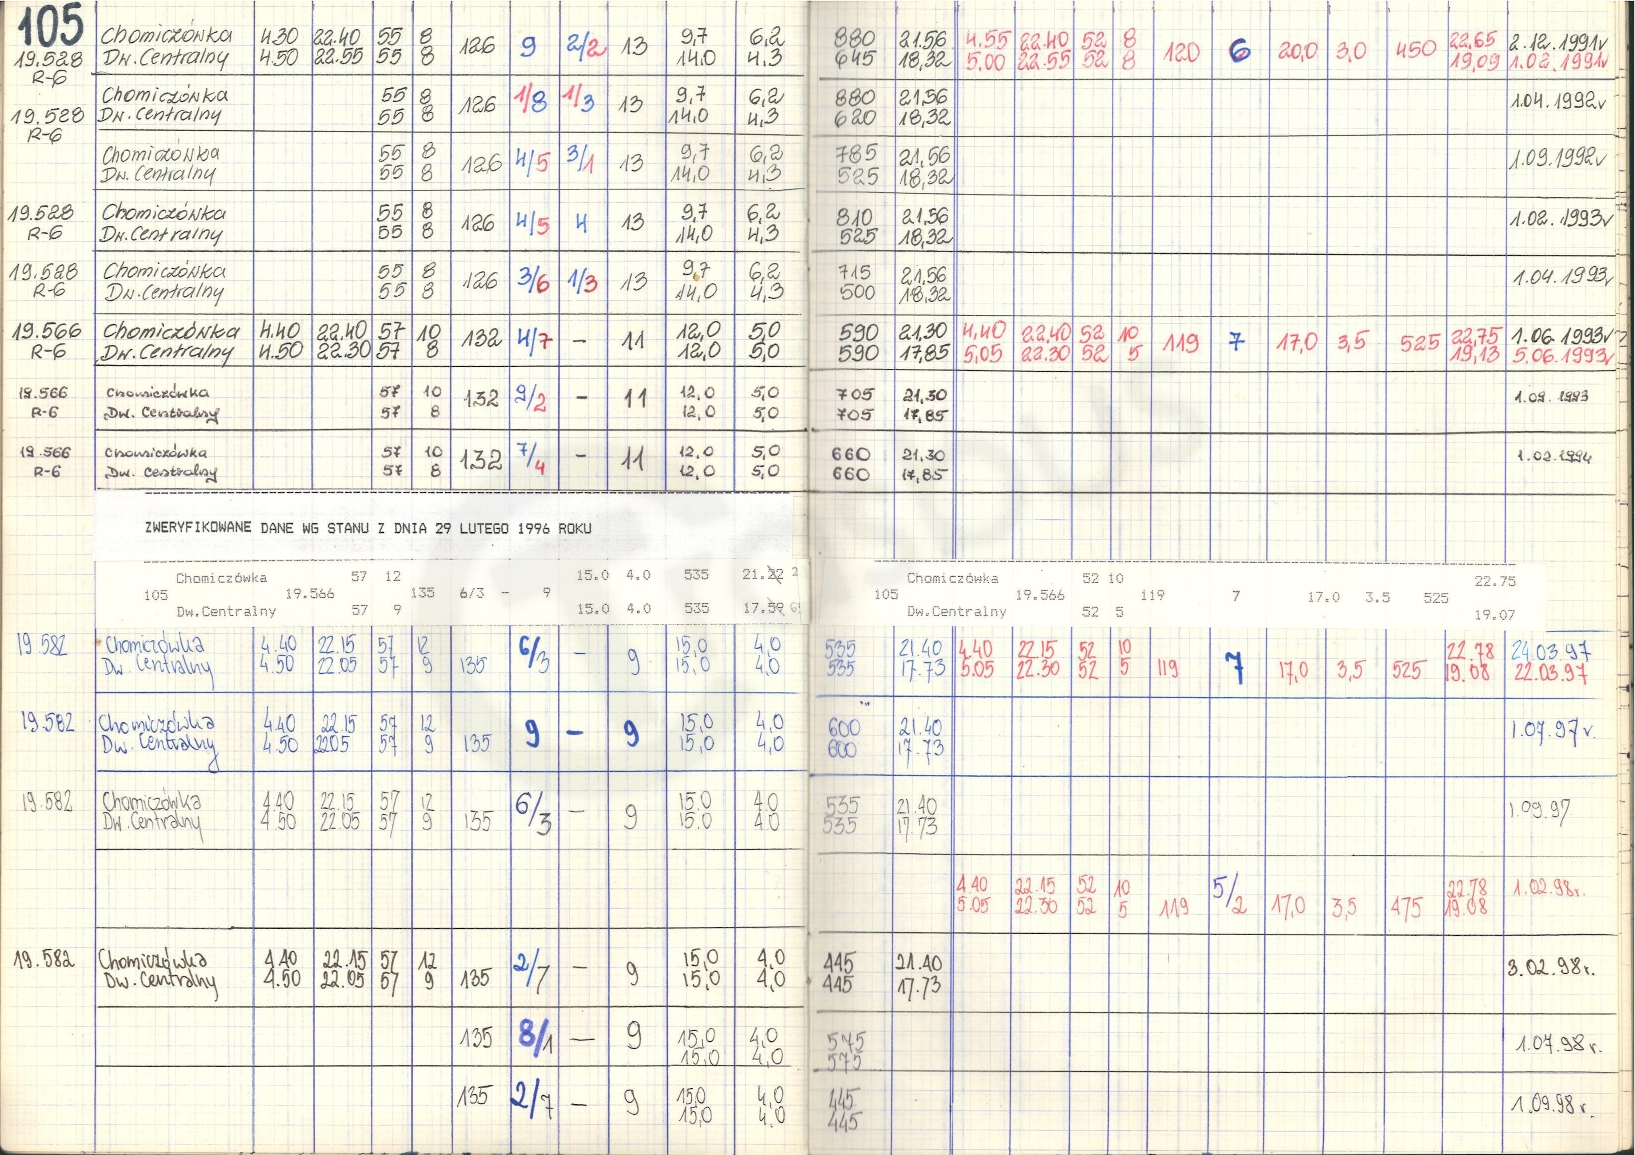 105 Chomiczówka 4.30 22.40 55 8 126 9 2/2 13 9,7 6,2 880 21.56 4.55 22.40 52 8 120 6 20,0 3,0 450 22,65 2.12.1991r
19.528 Dw.Centralny 4.50 22.55 55 8 14.0 4.3 645 18,32 5.00 22.55 52 8 19,09 1.02.1991r
R-6
Chomiczówka 55 8 126 1/8 1/3 13 9,7 6,2 880 21,56 1.04.1992r
19.528 Dw.Centralny 55 8 14,0 4,3 620 18,32
R-6
Chomiczówka 55 8 126 4/5 3/1 13 9,7 6,2 785 21,56 1.09.1992r
Dw. Centralny 55 8 14,0 4,3 525 18,32
19.528 Chomiczówka 55 8 126 4/5 4 13 9,7 6,2 810 21,56 1.02.1993r
R-6 Dw.Centralny 55 8 14,0 4,3 525 18,32
19.528 Chomiczówka 55 8 126 3/6 1/3 13 9,7 6,2 715 21,56 1.04.1993r
R-6 Dw.Centralny 55 8 14,0 4,3 500 18,32
19.566 Chomiczówka 4.40 22.40 57 10 132 4/7 - 11 12,0 5,0 590 21,30 4,40 22,40 52 10 119 7 17,0 3,5 525 22,75 1.06.1993r
R-6 Dw.Centralny 4.50 22.30 57 8 12,0 5,0 590 17,85 5,05 22.30 52 5 19,13 5.06.1993r
19.566 Chomiczówka 57 10 132 9/2 - 11 12,0 5,0 705 21,30 1.09.1993
R-6 Dw. Centralny 57 8 12,0 5,0 705 17,85
19.566 Chomiczówka 57 10 132 7/4 - 11 12,0 5,0 660 21,30 1.02.1994
R-6 Dw. Centralny 57 8 12,0 5,0 660 17,85
ZWERYFIKOWANE DANE WG STANU Z DNIA 29 LUTEGO 1996 ROKU
Chomiczówka 57 12 15.0 4.0 535 21.22 Chomiczówka 52 10 22.75
105 19.566 135 6/3 - 9 105 19.566 119 7 17.0 3.5 525
Dw.Centralny 57 9 15.0 4.0 535 17.59 Dw.Centralny 52 5 19.07
19.582 Chomiczówka 4.40 22.15 57 12 6/3 - 9 15,0 4,0 535 21.40 4.40 22.15 52 10 7 22.78 24.03.97
Dw. Centralny 4.50 22.05 57 9 135 15,0 4,0 535 17.73 5.05 22.30 52 5 119 17,0 3,5 525 19.08 22.03.97
19.582 Chomiczówka 4.40 22.15 57 12 9 - 9 15,0 4,0 600 21.40 1.07.97r.
Dw. Centralny 4.50 2205 57 9 135 15,0 4,0 600 17.73
19.582 Chomiczówka 4.40 22.15 57 12 6/3 - 9 15.0 4.0 535 21.40 1.09.97
Dw.Centralny 4.50 22.05 57 9 135 15.0 4.0 535 17.73
4.40 22.15 52 10 5/2 22.78 1.02.98r.
5.05 22.30 52 5 119 17,0 3,5 475 19.08
19.582 Chomiczówka 4.40 22.15 57 12 2/7 - 9 15,0 4,0 445 21.40 3.02.98r.
Dw. Centralny 4.50 22.05 57 9 135 15,0 4,0 445 17.73
135 8/1 - 9 15,0 4,0 575 1.07.98r.
15,0 4,0 575
135 2/7 - 9 15,0 4,0 445 1.09.98r.
15,0 4,0 445